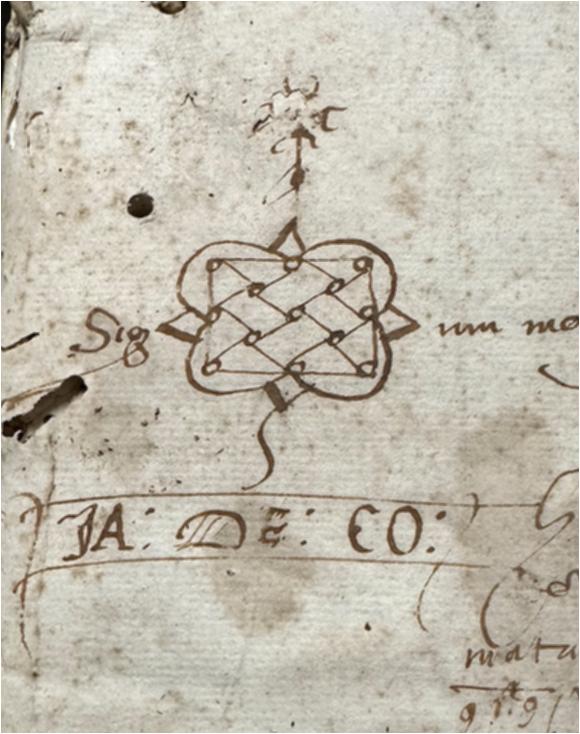 Sig um me
JA: DE: CO:
mata